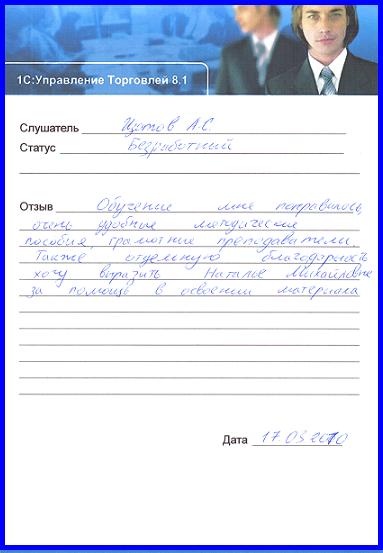 1С:Управление Торговлей 8.1
Слушатель Изотов А.С.
Статус Безработный
Отзыв Обучение мне понравилось,
очень удобные методические
пособия, грамотные преподаватели.
Также отдельную благодарность
хочу выразить Наталье Михайловне
за помощь в освоении материала
Дата 17 03 2010